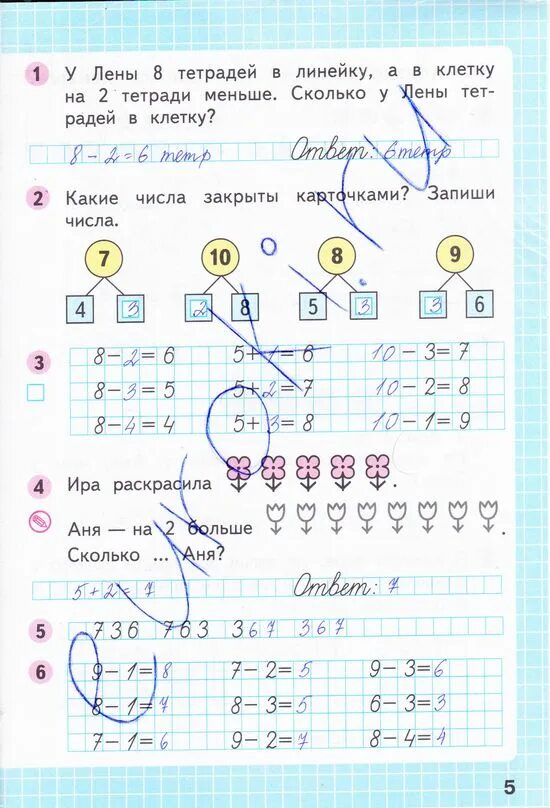 1 У Лены 8 тетрадей в линейку, а в клетку
на 2 тетради меньше. Сколько у Лены тет-
радей в клетку?
8 – 2 = 6 тетр Ответ: 6 тетр
2 Какие числа закрыты карточками? Запиши
числа.
7 10 8 9
4 3 2 8 5 3 3 6
3 8 – 2 = 6 5 + 1 = 6 10 – 3 = 7
8 – 3 = 5 5 + 2 = 7 10 – 2 = 8
8 – 4 = 4 5 + 3 = 8 10 – 1 = 9
4 Ира раскрасила .
Аня — на 2 больше
Сколько ... Аня?
5 + 2 = 7 Ответ: 7
5 736 763 367 367
6 9 – 1 = 8 7 – 2 = 5 9 – 3 = 6
8 – 1 = 7 8 – 3 = 5 6 – 3 = 3
7 – 1 = 6 9 – 2 = 7 8 – 4 = 4
5